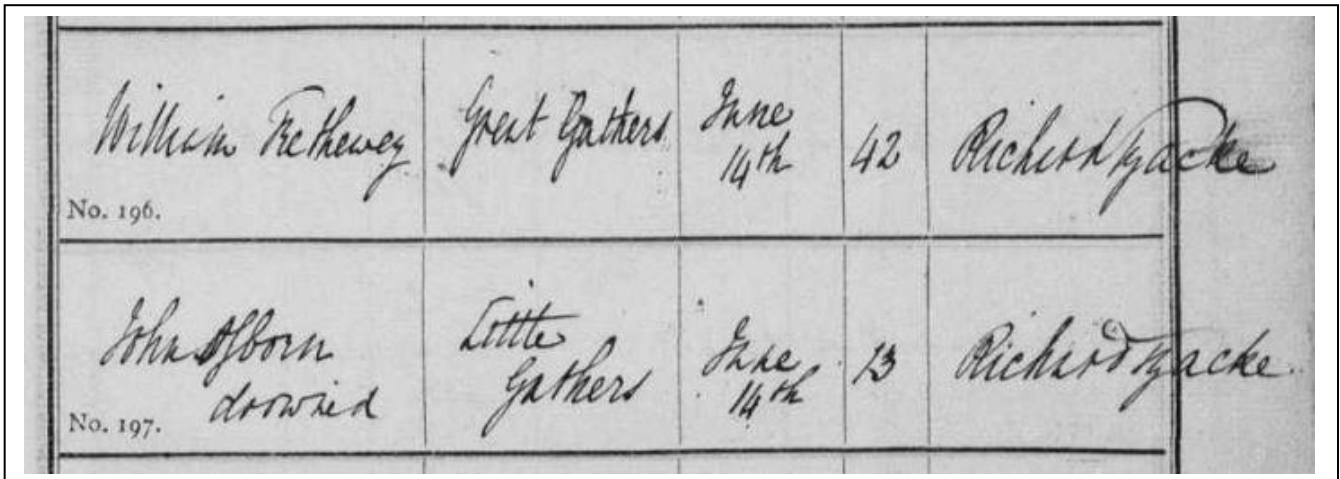 William Trethewey Great Gathers June 14th 42 Richard Tyacke
No. 196.
John Osborn drowned Little Gathers June 14th 13 Richard Tyacke
No. 197.